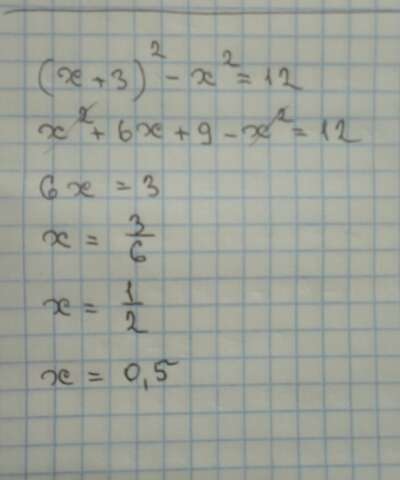 (x + 3)² - x² = 12
x² + 6x + 9 - x² = 12
6x = 3
x = 3/6
x = 1/2
x = 0,5